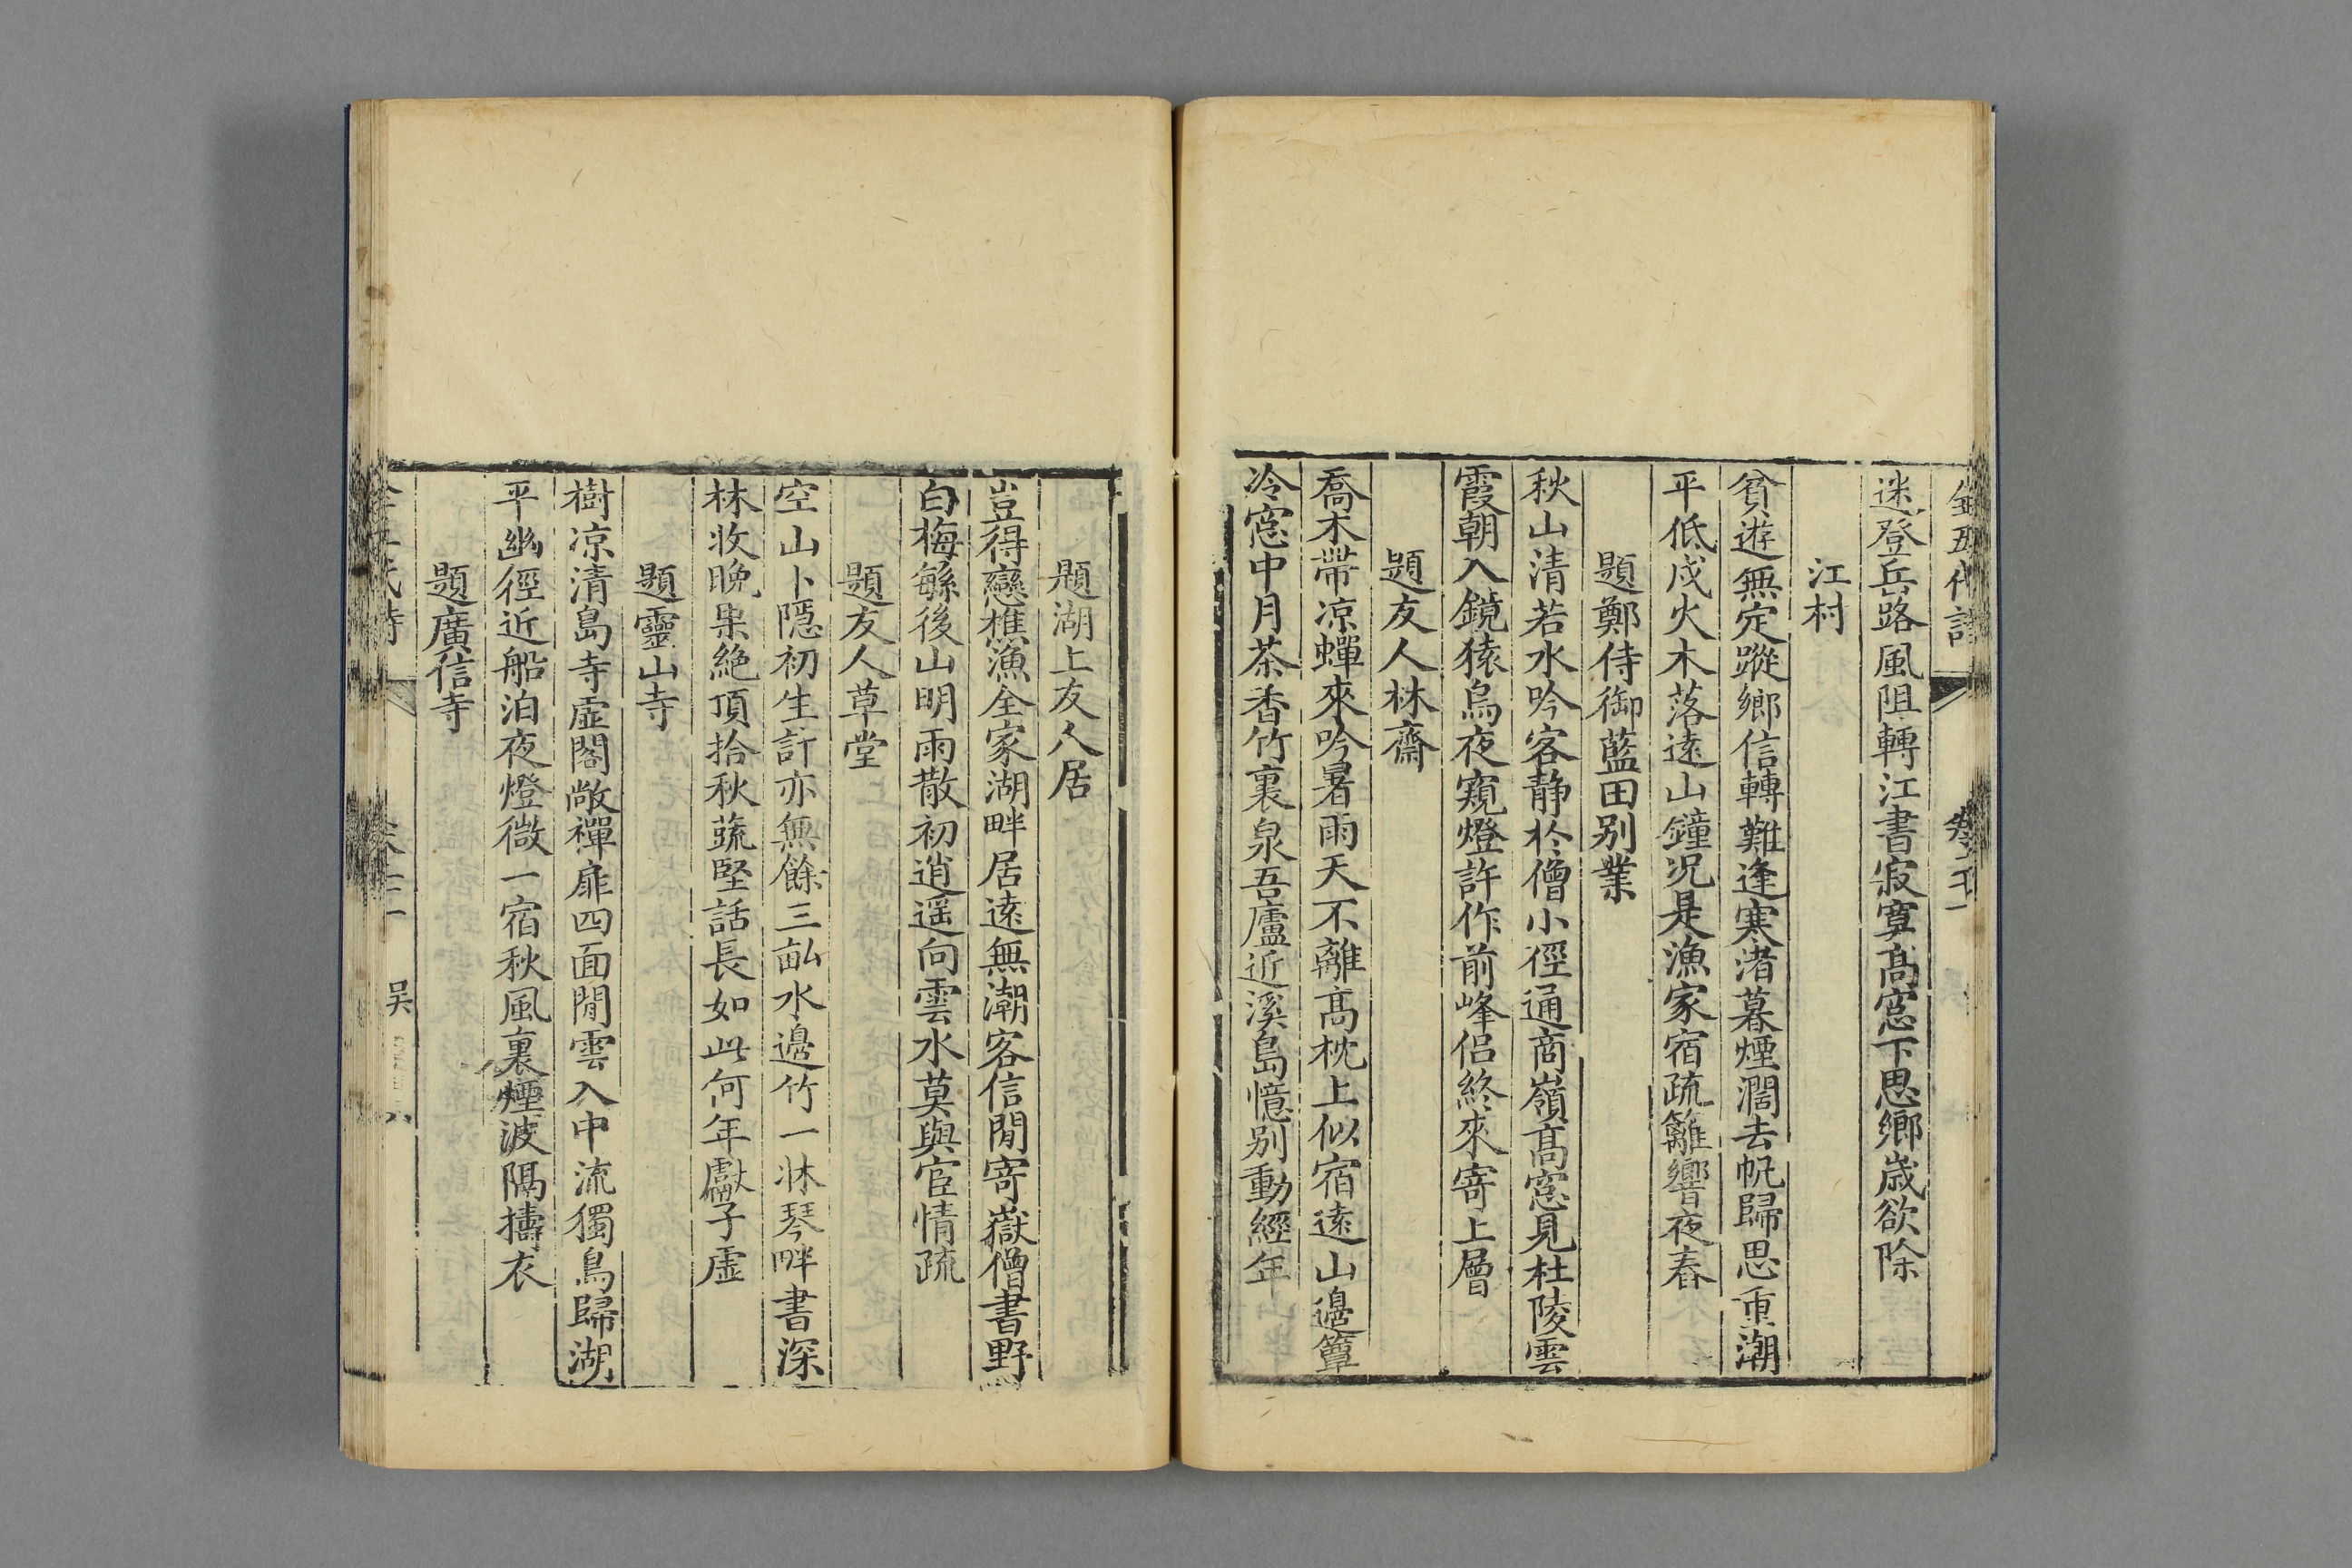 全五代詩
卷十一
迷登岳路風阻轉江書寂寞髙窓下思鄉歲欲除
江村
貧遊無定蹤鄉信轉難逢寒渚暮煙濶去帆歸思重潮
平低戍火木落逺山鐘况是漁家宿疏籬響夜舂
題鄭侍御藍田别業
秋山清若水吟客静於僧小徑通商嶺髙窓見杜陵雲
霞朝入鏡猿鳥夜窺燈許作前峰侣終來寄上層
題友人林齋
喬木帶凉蟬來吟暑雨天不離髙枕上似宿逺山邊簟
冷窓中月茶香竹裏泉吾廬近溪島憶别動經年
題湖上友人居
豈得戀樵漁全家湖畔居逺無潮客信閒寄嶽僧書野
白梅繁後山明雨散初逍遥向雲水莫與宦情疏
題友人草堂
空山卜隱初生計亦無餘三畝水邊竹一牀琴畔書深
林收晚果絶頂拾秋蔬堅話長如此何年獻子虚
題靈山寺
樹凉清島寺虚閣敞禪扉四面閒雲入中流獨鳥歸湖
平幽徑近船泊夜燈微一宿秋風裏煙波隔擣衣
題廣信寺
全五代詩
卷十一
吴